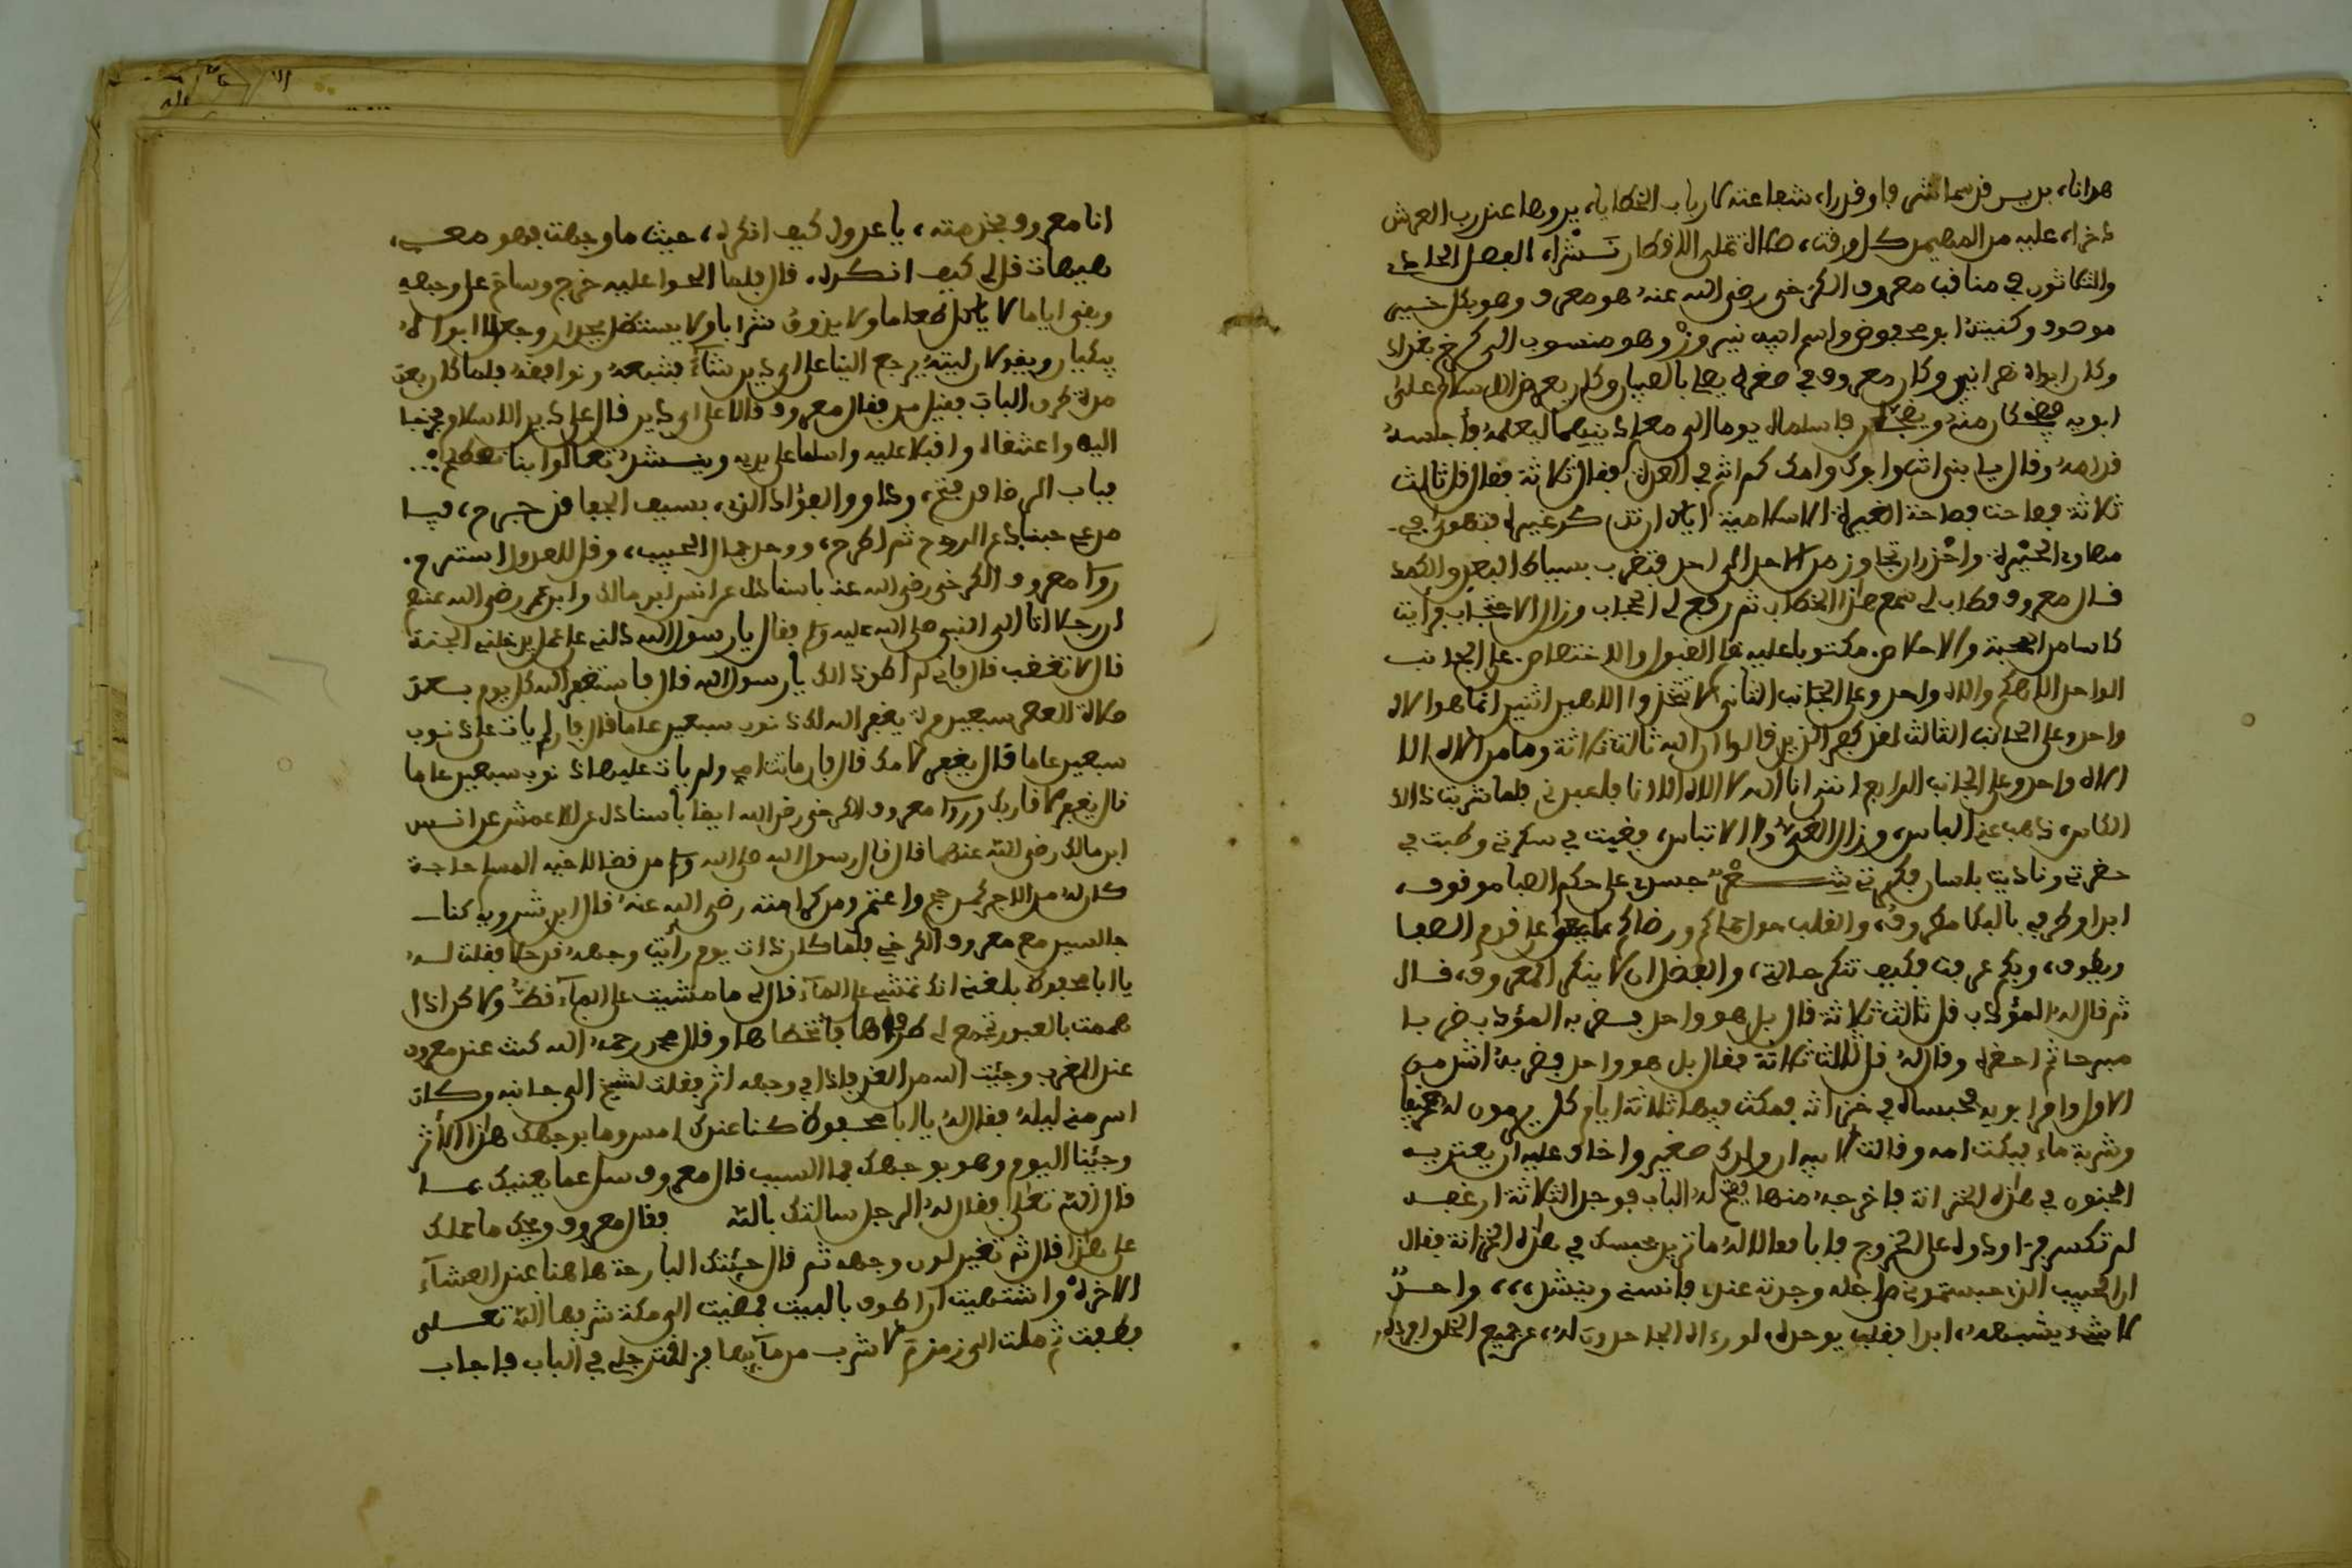 والثلاثون في مناقب معروف الكرخي رضي الله عنه هو معروف وهو بكل خير
موصوف وكنيته ابو محفوظ واسم ابيه فيروز وهو منسوب الى كرخ بغداد
وكان ابواه نصرانيين وكان معروف في صغره يصلي بالصبيان وكان يعرض الاسلام على
ابويه فاسلماه يوما الى معلم ليعلمه فأجلسه
قدامه وقال يا بني انت وابوك وامك كم انتم في العدة فقال ثلاثة فقال قل ثالث
ثلاثة فصاحت الغيرة الاسلامية اياك ان تذكر غيره فتهوى في
مهاوي الحيرة واحذر ان تجاوز من الاحد الى احد فتضرب بسياط البعد والكمد
قال معروف فطاب لي سمع هذا الخطاب ثم رفع لي الحجاب وزال الاحتجاب فرأيت
كاسا من المحبة مكتوبا عليه القبول والاختصاص على الجانب
الواحد الاهكم والاه واحد وعلى الجانب الثاني لا تتخذوا الاهين اثنين انما هو الاه
واحد وعلى الجانب الثالث لقد كفر الذين قالوا ان الله ثالث ثلاثة وما من الاه الا
الاه واحد وعلى الجانب الرابع انني انا الله لا الاه الا انا فاعبدني فلما شربت ذالك
الكاس ذهب عني الباس وزال والالتباس فغبت في سكرتي وطبت في
حضرتي وناديت بلسان فكرتي جسدي على حكم الصبا موقوف
ابدا وطرفي بالبكا مطروف والقلب حول حماكم ورضاكم
ويطوف وبكم عرفت فكيف تنكر حالتي والفضل ان لا ينكر المعروف قال
ثم قال له المؤدب قل ثالث ثلاثة قال بل هو واحد فضربه المؤدب ضربا
مبرحا ثم وقال له قل ثالث ثلاثة فقال بل هو واحد فضربه اشد من
الاول وامر ابويه فحبساه في خزانة فمكث فيها ثلاثة ايام كل يوم له رغيفا
وشربة ماء فبكت امه وقالت لابيه ان ولدك صغير واخاف عليه ان يعتريه
الجنون في هذه الخزانة فاخرجه منها ففتح له الباب فوجد الثلاثة ارغفة
لم تكسر على الخروج فابى فقالا له ما تريد بحبسك في هذه الخزانة فقال
ان الحبيب الذي حبستموني من اجله وجدته عندي فآنسني وينشد واحد
لا شيء يشبهه ابدا فقلبي يوحده لو رءاه الجاحدون له عن جميع الخلق
انا معروف بخدمته يا عذولي كيف انكره حيث ما وجهت فهو معي
هيهات قل لي كيف انكره قال فلما الحوا عليه خرج وساح على وجهه
وبقي اياما لا ياكل طعاما ولا يذوق شرابا ولا يستظل بجدار وجعل ابواه
يبكيان ويقولان ليته يرجع الينا على اي دين شاء فنتبعه ونوافقه فلما كان بعد
مدة طرق الباب فقيل من فقال معروف قالا على اي دين قال على دين الاسلام فخرجا
اليه واعتنقاه واقبلا عليه واسلما على يديه وينشد تعالوا بنا
وداو الفؤاد الذي بسيف الجفا قد جرح
الروح ثم اطرح ووحد جمال الحبيب وقل للعذول استرح
روى معروف الكرخي رضي الله عنه باسناده عن انس ابن مالك وابن عمر رضي الله عنهم
ان رجلا اتى الى النبي صلى الله عليه وسلم فقال يا رسول الله دلني على عمل يدخلني الجنة
قال لا تغضب قال فاني لم اطق ذالك يا رسول الله قال فاستغفر الله كل يوم بعد
صلاة العصر سبعين مرة يغفر الله لك ذنوب سبعين عاما قال فان لم يات على ذنوب
سبعين عاما قال يغفر لامك قال فان ماتت امي ولم يات عليها ذنوب سبعين عاما
قال يغفر لاقاربك وروى معروف الكرخي رضي الله ايضا باسناده عن الاعمش عن انس
ابن مالك رضي الله عنهما قال قال رسول الله صلى الله وسلم من قضى لاخيه المسلم حاجة
كان له من الاجر كمن حج واعتمر ومن كرامته رضي الله عنه قال ابن شرويه كنا
جالسين مع معروف الكرخي فلما كان ذات يوم رأيت وجهه فرحا فقلت له
يا ابا محفوظ بلغني انك تمشي على الماء قال لي ما مشيت على الماء قط ولاكن اذا
هممت بالعبور تجمع لي طرفاها فاتخطاها وقال محمد رحمه الله كنت عند معروف
عند المغرب وجئت اليه من الغد فاذا في وجهه اثر فقلت لشيخ الى جانبه وكان
اسر مني له فقال له يا ابا محفوظ كنا عندك امس وما بوجهك هذا الاثر
وجئنا اليوم وهو بوجهك فما السبب قال معروف سل عما يعنيك عما
قال الله تعالى فقال له الرجل سالتك بالله فقال معروف ويحك ما حملك
على هذا قال ثم تغير لون وجهه ثم قال جئتك البارحة هاهنا عند العشاء
الاخرة واشتهيت ان اطوف بالبيت فمضيت الى مكة شرفها الله تعالى
فطفت ثم ملت الى زمزم لاشرب من مآئها فزلقت رجلي في الباب فاصاب